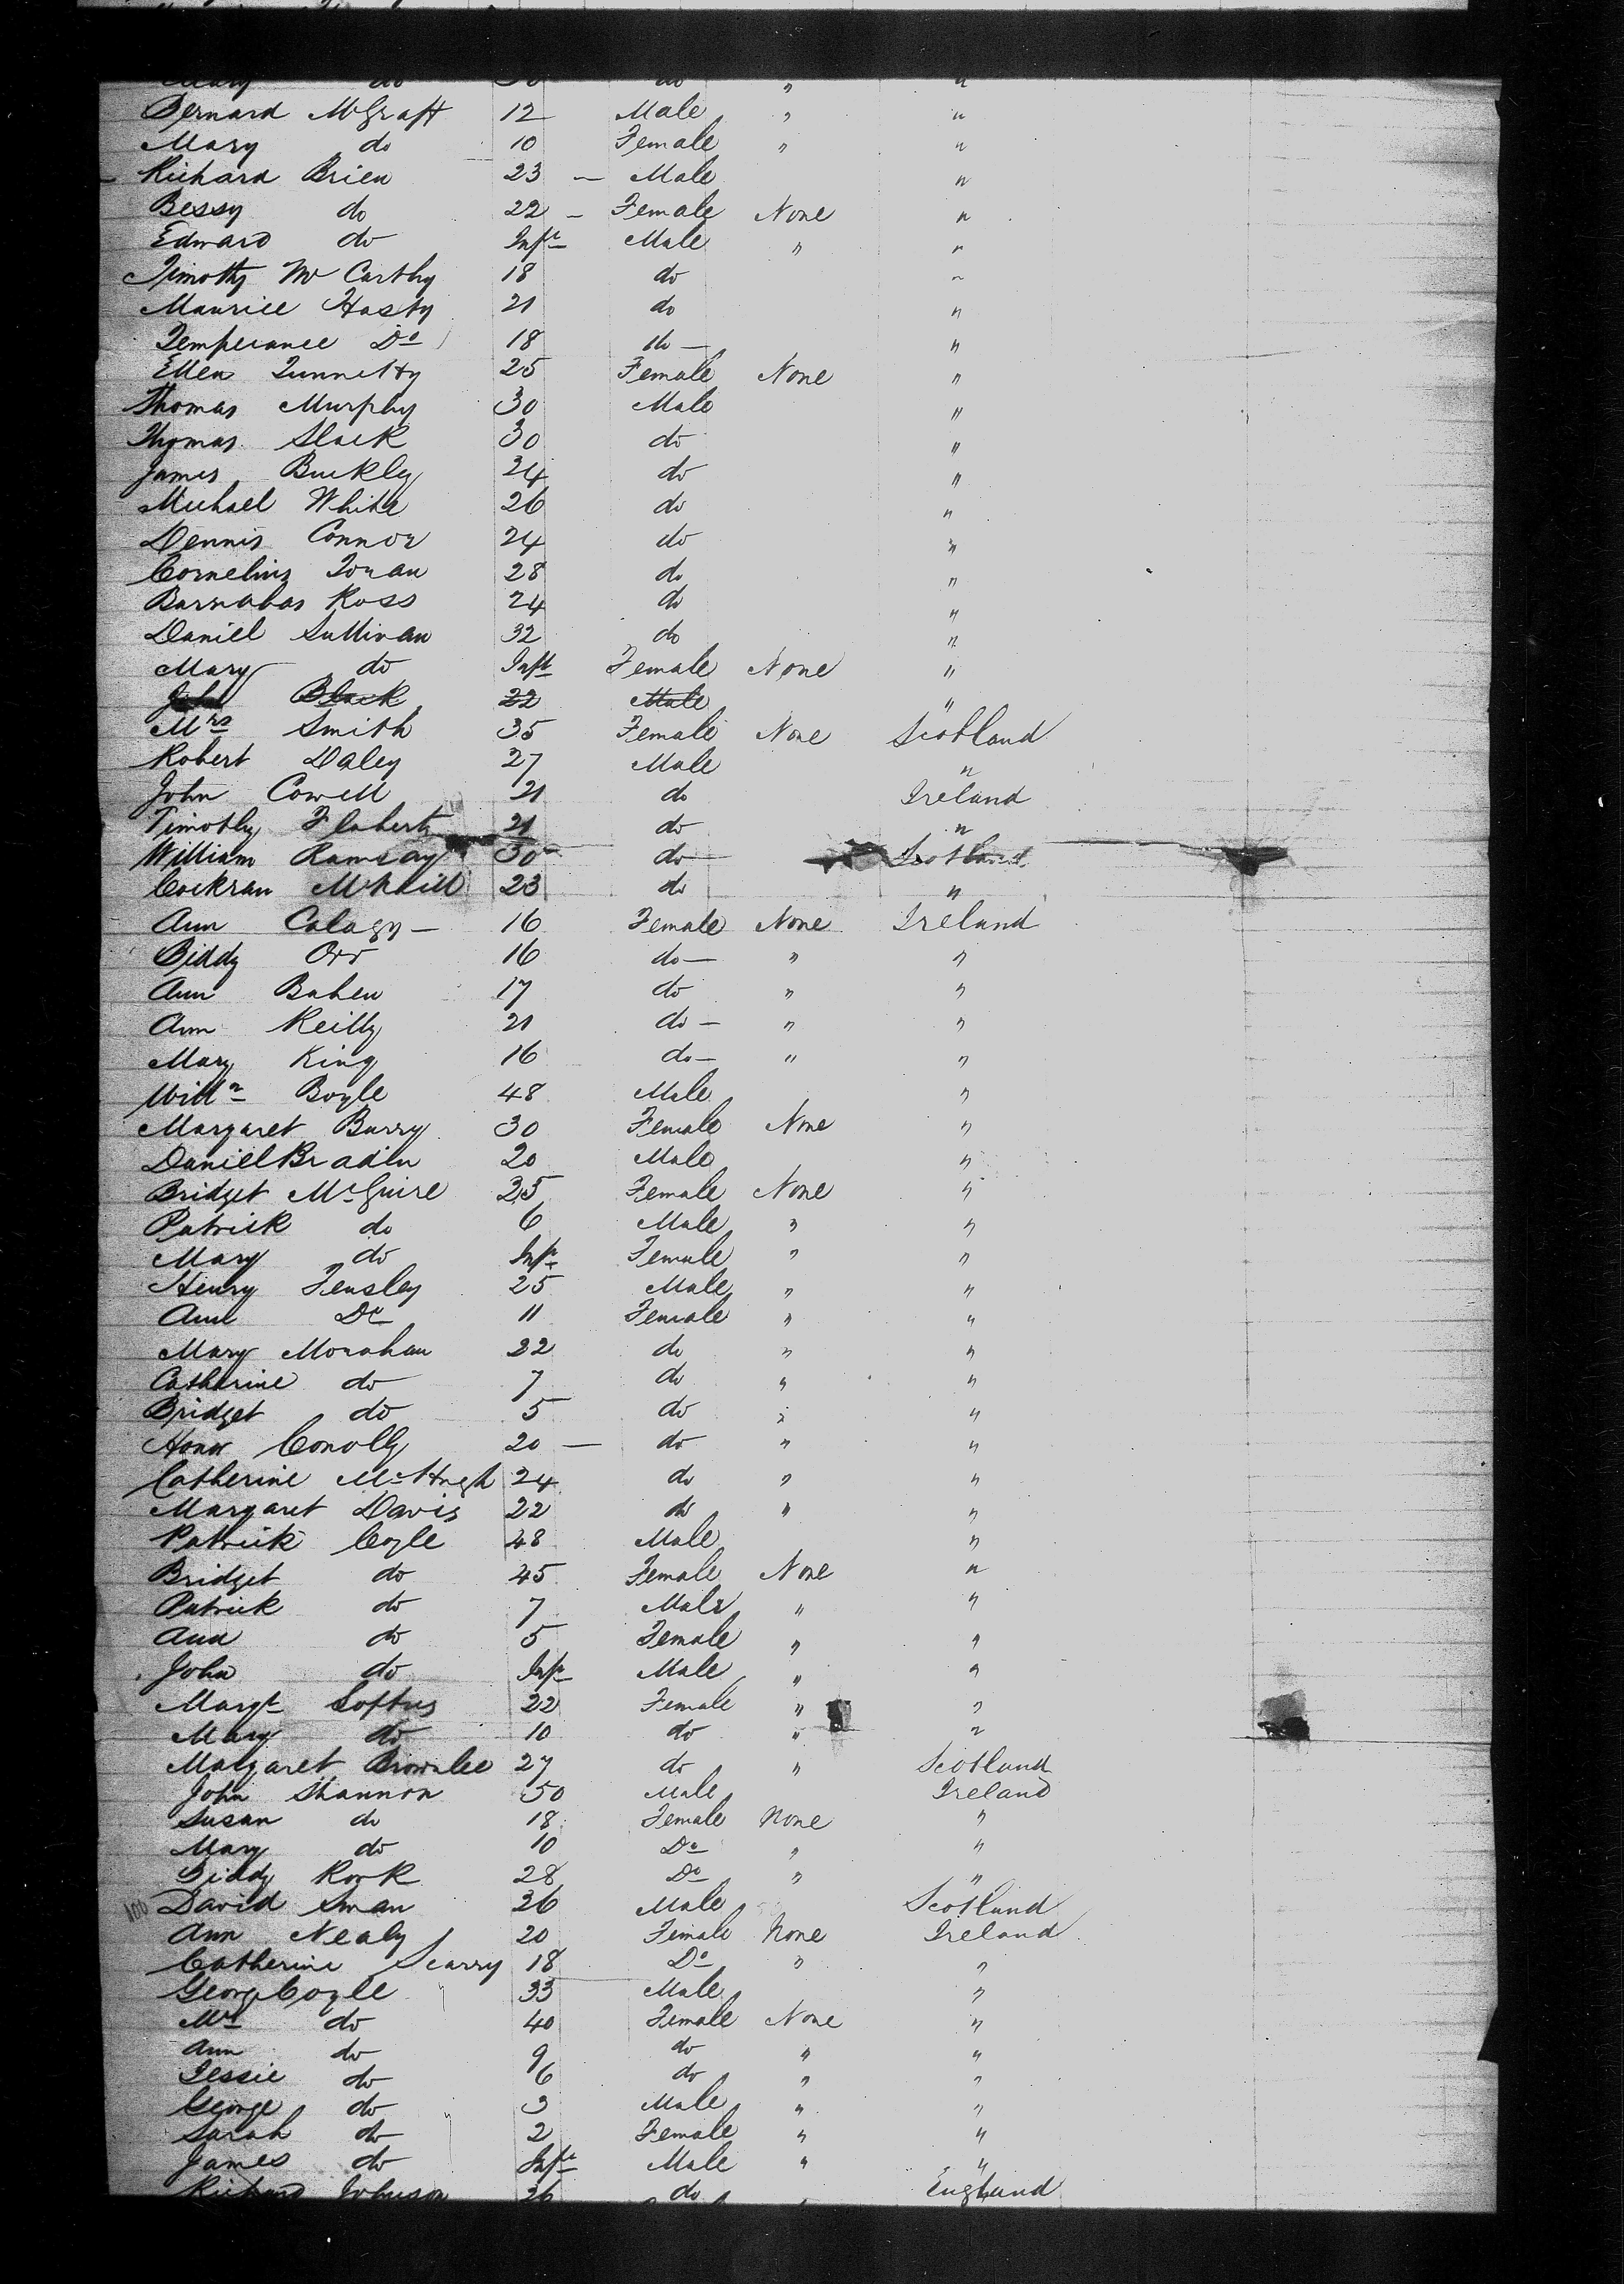 Mary do 30 do " "
Bernard McGraft 12 Male " "
Mary do 10 Female " "
Richard Brien 23 — Male "
Bessy do 22 — Female None "
Edward do Inft Male " "
Timothy Mc Carthy 18 do "
Maurice Hasty 21 do "
Temperance Do 18 do — "
Ellen Tunnetty 25 Female None "
Thomas Murphy 30 Male "
Thomas Slack 30 do "
James Buckley 24 do "
Michael White 26 do "
Dennis Connor 24 do "
Cornelius Toran 28 do "
Barnabas Ross 24 do "
Daniel Sullivan 32 do "
Mary do Inft Female None "
John Black 22 Male "
Mrs Smith 35 Female None Scotland
Robert Daley 27 Male "
John Cowell 21 do Ireland
Timothy Flaherty 21 do "
William Ramsay 30 do — Scotland
Cockran McNeill 23 do "
Ann Calagy — 16 Female None Ireland
Biddy Orr 16 do — " "
Ann Bahen 17 do " "
Ann Reilly 21 do — " "
Mary King 16 do — " "
Willm Boyle 48 Male "
Margaret Barry 30 Female None "
Daniel Braden 20 Male "
Bridget McGuire 35 Female None "
Patrick do 6 Male " "
Mary do Inft Female " "
Henry Tensley 25 Male " "
Ann Do 11 Female " "
Mary Monahan 22 do " "
Catherine do 7 do " "
Bridget do 5 do " "
Honor Conolly 20 — do " "
Catherine McHugh 24 do " "
Margaret Davis 22 do " "
Patrick Coyle 48 Male "
Bridget do 45 Female None "
Patrick do 7 Male " "
Ann do 5 Female " "
John do Inft Male " "
Margt Loftus 22 Female " "
Mary do 10 do " "
Margaret Brownlee 27 do " Scotland
John Shannon 50 Male Ireland
Susan do 18 Female None "
Mary do 10 Do " "
Biddy Rork 28 Do " "
100 David Swan 26 Male Scotland
Ann Nealy 20 Female None Ireland
Catherine Scarry 18 Do " "
George Coyle 33 Male "
Mrs do 40 Female None "
Ann do 9 do " "
Jessie do 6 do " "
George do 3 Male " "
Sarah do 2 Female " "
James do Inft Male " "
Richard Johnson 26 do England